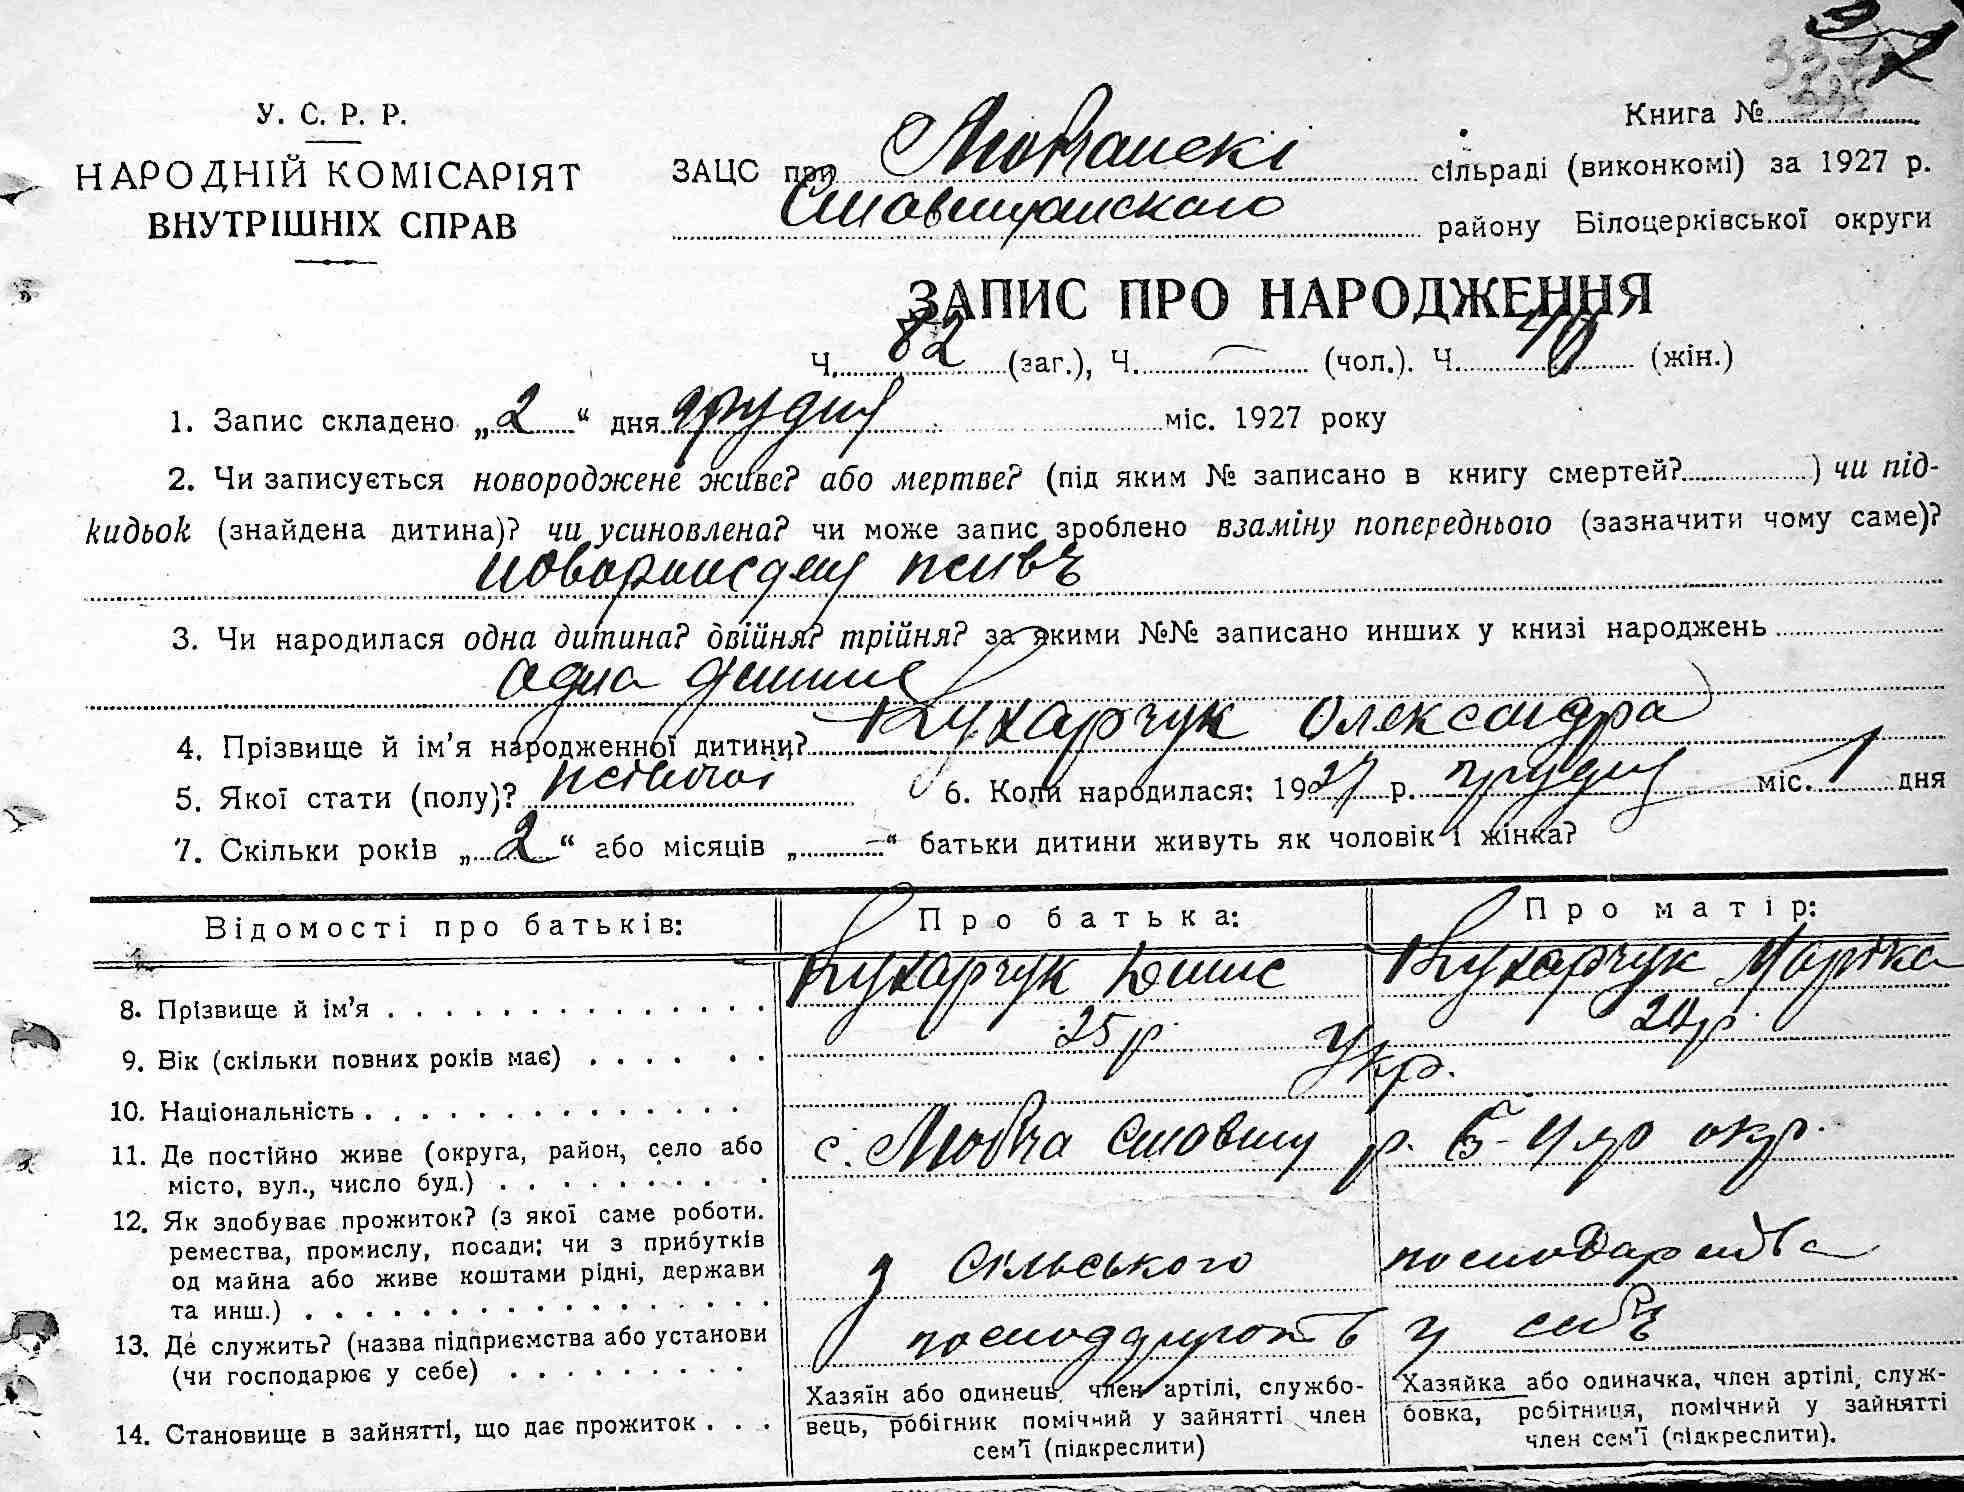 У. С. Р. Р.
НАРОДНІЙ КОМІСАРІЯТ
ВНУТРІШНІХ СПРАВ
Книга №
ЗАЦС при Любчанскі сільраді (виконкомі) за 1927 р.
Ставищанского району Білоцерківської округи
ЗАПИС ПРО НАРОДЖЕННЯ
Ч. 82 (заг.), Ч. — (чол.). Ч. 40 (жін.)
1. Запис складено „2“ дня грудня міс. 1927 року
2. Чи записується новороджене живе? або мертве? (під яким № записано в книгу смертей?) чи під-
кидьок (знайдена дитина)? чи усиновлена? чи може запис зроблено взаміну попереднього (зазначити чому саме)?
3. Чи народилася одна дитина? двійня? трійня? за якими №№ записано инших у книзі народжень
одна
4. Прізвище й ім'я народженної дитини? Кухарчук Олександра
5. Якої стати (полу)? жіночої 6. Коли народилася: 1927 р. грудня міс. 1 дня
7. Скільки років „2“ або місяців „—“ батьки дитини живуть як чоловік і жінка?
Відомості про батьків: Про батька: Про матір:
8. Прізвище й ім'я Кухарчук Денис Кухарчук Марійка
9. Вік (скільки повних років має) 25 р.
10. Національність Укр.
11. Де постійно живе (округа, район, село або
місто, вул., число буд.) с. Любча Ставищ р. Б-Цяр окр.
12. Як здобуває прожиток? (з якої саме роботи.
ремества, промислу, посади; чи з прибутків
од майна або живе коштами рідні, держави
та инш.) з сільського господарства
13. Де служить? (назва підприємства або установи
(чи господарює у себе) у себъ
14. Становище в зайнятті, що дає прожиток
Хазяїн або одинець, член артілі, службо-
вець, робігник помічний у зайнятті член
сем'ї (підкреслити)
Хазяйка або одиначка, член артілі, служ-
бовка, робітниця, помічний у зайнятті
член сем'ї (підкреслити).